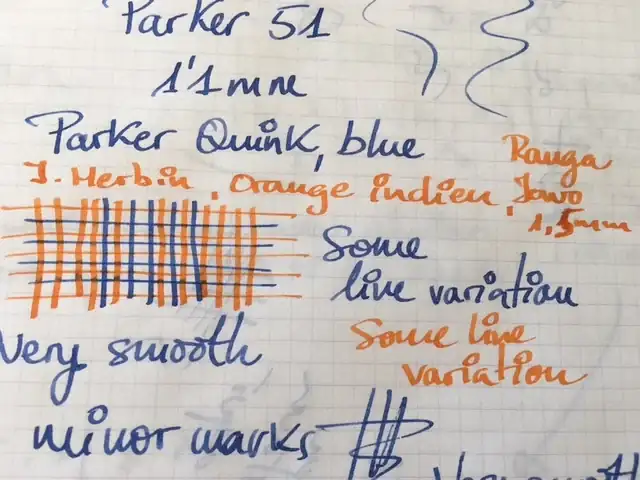 Parker 51
1'1 mm
Parker Quink, blue
Ranga
J. Herbin, Orange indien, Jowo
1,5mm
Some
line variation
Very smooth
Some line
variation
minor marks